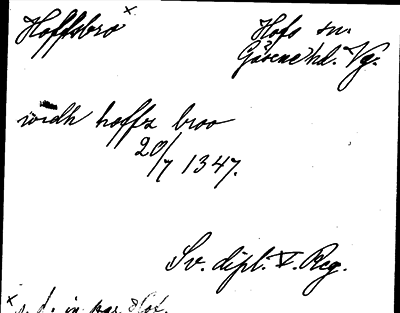 Hoffsbro x
Hofs sn.
Gäsene hd. Vg.
widh hoffs broo
20/7 1347.
Sv. dipl. V. Reg.
x s. d. in par. Hof.